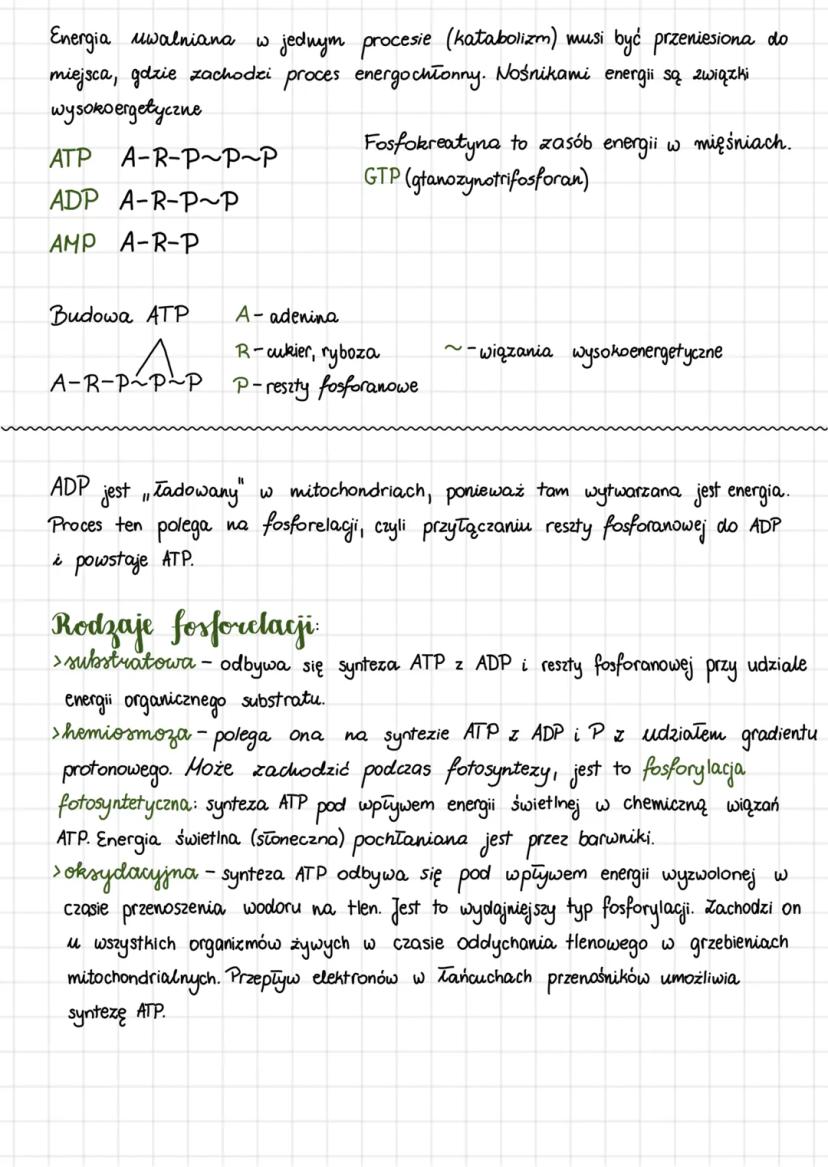 Energia uwalniana w jednym procesie (katabolizm) musi być przeniesiona do
miejsca, gdzie zachodzi proces energochłonny. Nośnikami energii są związki
wysokoergetyczne
ATP A-R-P~P~P
ADP A-R-P~P
AMP A-R-P
Fosfokreatyna to zasób energii w mięśniach.
GTP (gtanozynotrifosforan)
Budowa ATP
A-R-P~P~P
A - adenina
R - cukier, ryboza
P - reszty fosforanowe
~ - wiązania wysokoenergetyczne
ADP jest „ładowany" w mitochondriach, ponieważ tam wytwarzana jest energia.
Proces ten polega na fosforelacji, czyli przyłączaniu reszty fosforanowej do ADP
i powstaje ATP.
Rodzaje fosforelacji:
>substratowa - odbywa się synteza ATP z ADP i reszty fosforanowej przy udziale
energii organicznego substratu.
>hemiosmoza - polega ona na syntezie ATP z ADP i P z udziałem gradientu
protonowego. Może zachodzić podczas fotosyntezy, jest to fosforylacja
fotosyntetyczna: synteza ATP pod wpływem energii świetlnej w chemiczną wiązań
ATP. Energia świetlna (słoneczna) pochłaniana jest przez barwniki.
>oksydacyjna - synteza ATP odbywa się pod wpływem energii wyzwolonej w
czasie przenoszenia wodoru na tlen. Jest to wydajniejszy typ fosforylacji. Zachodzi on
u wszystkich organizmów żywych w czasie oddychania tlenowego w grzebieniach
mitochondrialnych. Przepływ elektronów w łańcuchach przenośników umożliwia
syntezę ATP.